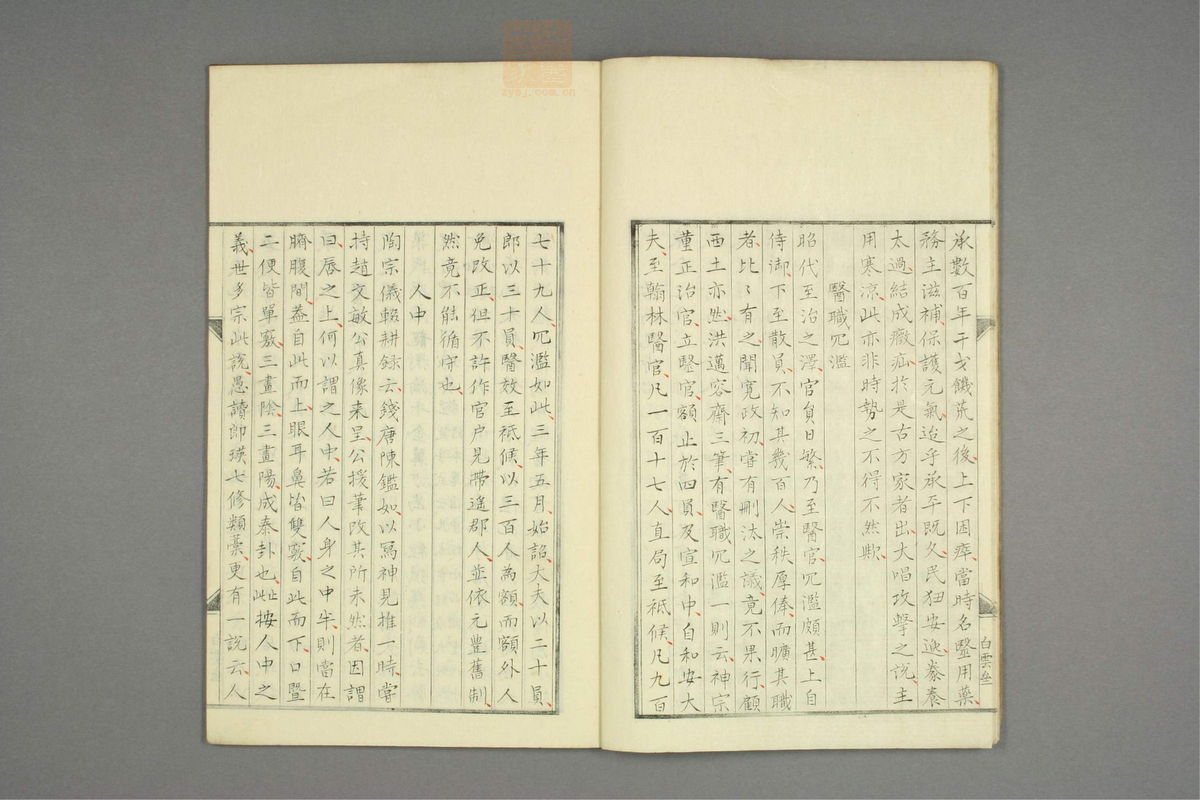 承數百年干戈饑荒之後上下困瘁當時名毉用藥
務主滋補保護元氣迨乎承平既久民狃安逸豢養
太過結成癥疝於是古方家者出大唱攻擊之說主
用寒涼此亦非時勢之不得不然歟
醫職冗濫
昭代至治之澤官負日繁乃至醫官冗濫頗甚上自
侍御下至散員不知其幾百人崇秩厚俸而曠其職
者比〻有之聞寬政初嘗有刪汰之議竟不果行顧
西土亦然洪邁容齋三筆有醫職冗濫一則云神宗
董正治官立毉官額止於四員及宣和中自和安大
夫至翰林醫官凡一百十七人直局至祗候凡九百
白雲
七十九人冗濫如此三年五月始詔大夫以二十員
郎以三十員醫效至祗候以三百人為額而額外人
免改正但不許作官户見帶遙郡人並依元豐舊制
然竟不能循守也
人中
陶宗儀輟耕録云錢唐陳鑑如以寫神見推一時嘗
持趙文敏公真像来呈公援筆改其所未然者因謂
曰唇之上何以謂之人中若曰人身之中半則當在
臍腹間葢自此而上眼耳鼻皆雙竅自此而下口暨
二便皆單竅三畫陰三畫陽成泰卦也此按人中之
義世多宗此說愚讀郎瑛七修類藁更有一說云人
zyoj.com.cn